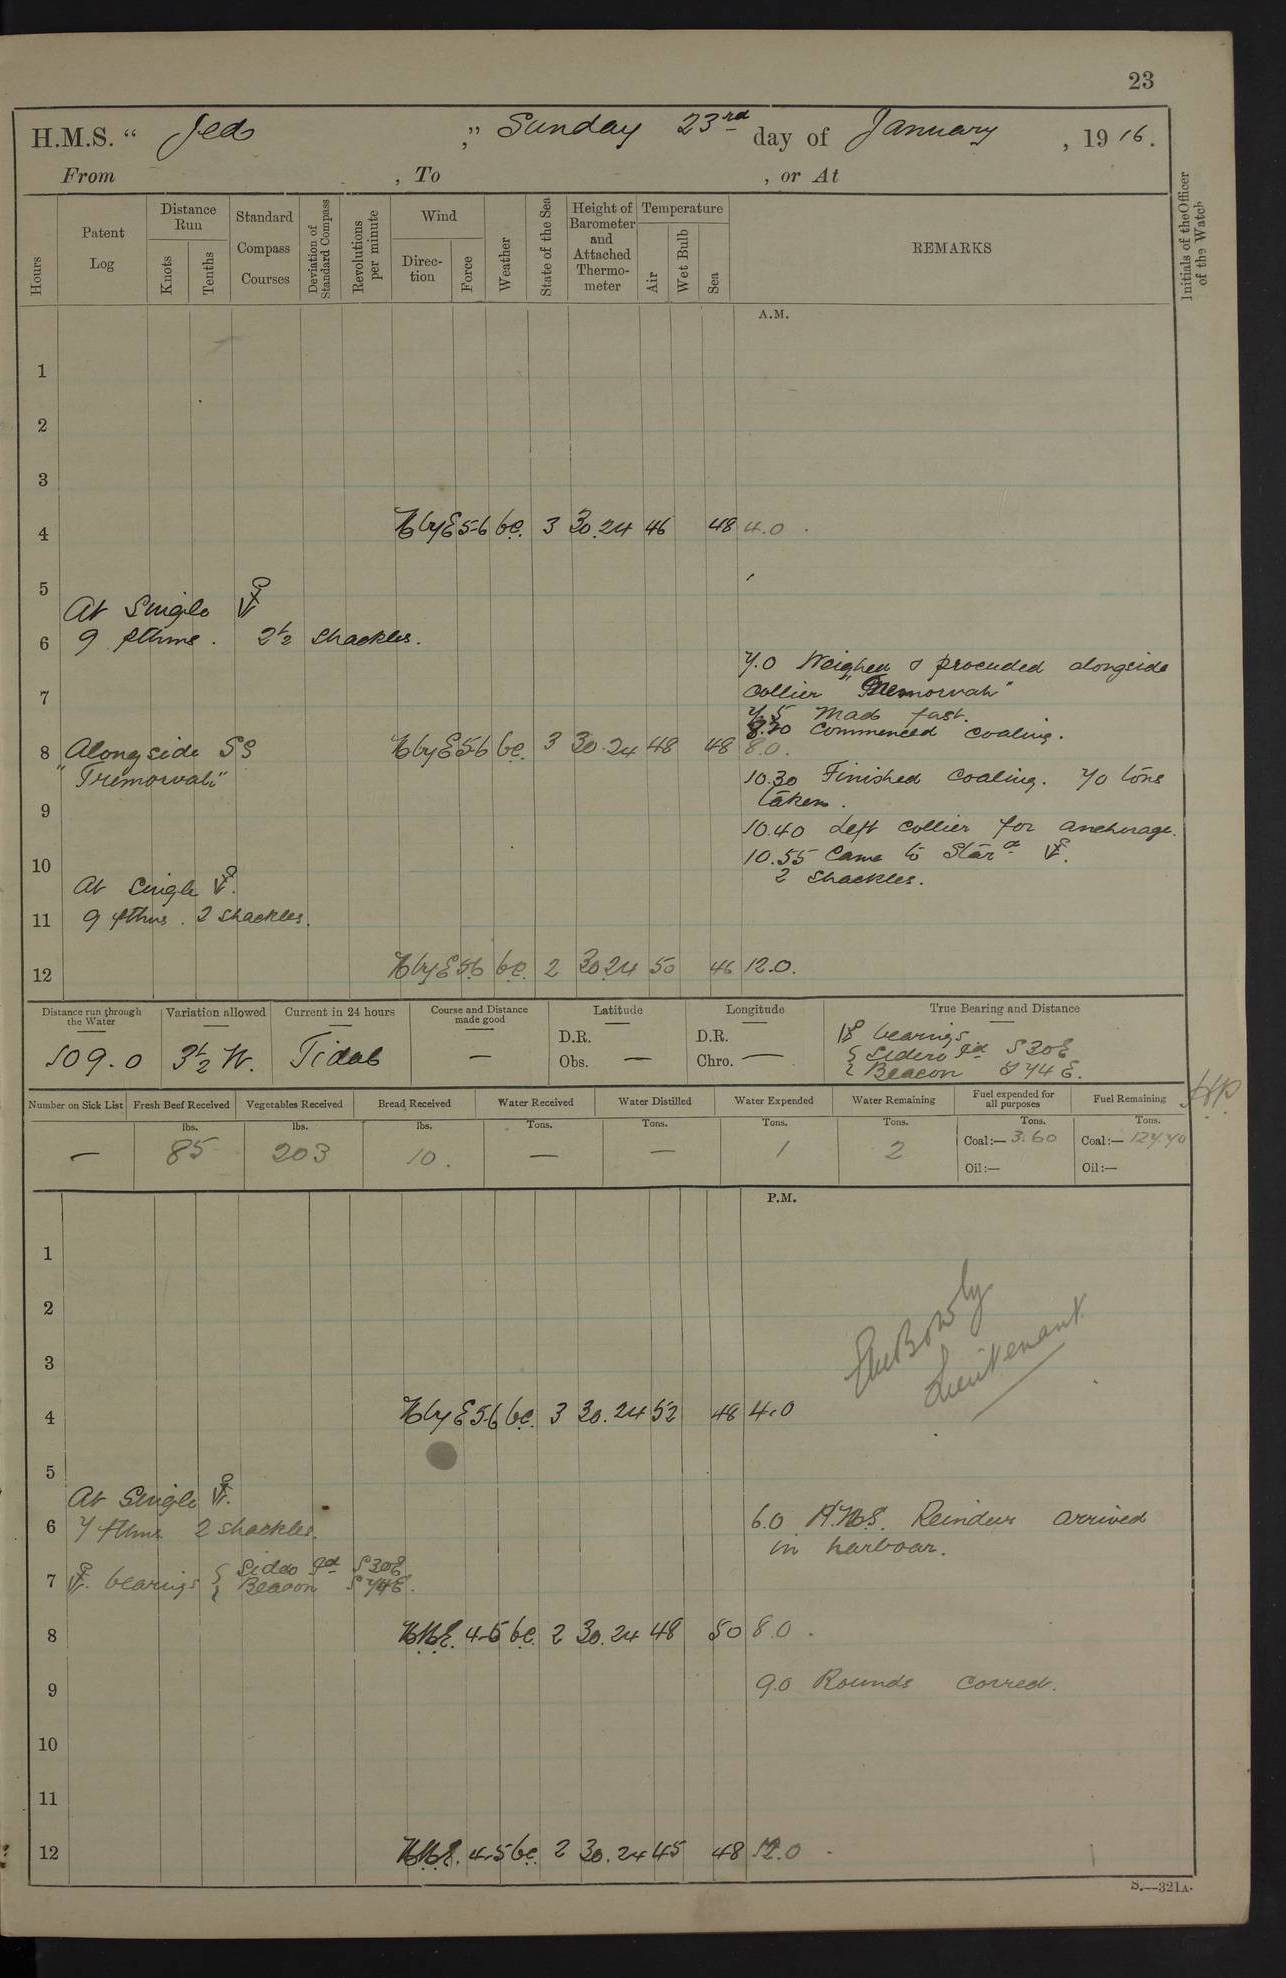 23
H.M.S. “ Jed ,” Sunday 23rd day of January , 1916.
From , To , or At
Hours
Patent Log
Distance Run
Knots
Tenths
Standard Compass Courses
Deviation of Standard Compass
Revolutions per minute
Wind
Direction
Force
Weather
State of the Sea
Height of Barometer and Attached Thermometer
Temperature
Air
Wet Bulb
Sea
REMARKS
Initials of the Officer of the Watch
A.M.
1
2
3
4 N by E 5-6 b.c. 3 30.24 46 48 4.0
5
At Single
6 9 fthms. 2½ shackles.
7.0 Weighed & proceeded alongside
collier "Tremorvah"
7
7.5 Made fast.
8.20 Commenced coaling.
8 Alongside SS N by E 5-6 b.c. 3 30.24 48 48 8.0.
"Tremorvah"
10.30 Finished coaling. 70 tons
taken.
9
10.40 Left collier for anchorage.
10.55 Came to Starbd
2 shackles.
10
At single
11 9 fthms. 2 shackles.
12 N by E 5-6 b.c. 2 30.24 50 46 12.0.
Distance run through the Water
109.0
Variation allowed
3½ W.
Current in 24 hours
Tidal
Course and Distance made good
—
Latitude
D.R.
Obs. —
Longitude
D.R.
Chro. —
True Bearing and Distance
bearings
Sidero Id S 30 E
Beacon S 74 E.
Number on Sick List
—
Fresh Beef Received
lbs.
85
Vegetables Received
lbs.
203
Bread Received
lbs.
10.
Water Received
Tons.
—
Water Distilled
Tons.
—
Water Expended
Tons.
1
Water Remaining
Tons.
2
Fuel expended for all purposes
Tons.
Coal:— 3.60
Oil:—
Fuel Remaining
Tons.
Coal:— 127.40
Oil:—
P.M.
1
2
3
Lieutenant
4 N by E 5-6 b.c. 3 30.24 52 48 4.0
5
At Single
6 7 fthms 2 shackles.
6.0 H.M.S. Reindeer arrived
in harbour.
7 bearings Sidero Id S 30 E
Beacon S 74 E.
8 N.N.E. 4-5 b.c. 2 30.24 48 50 8.0.
9 9.0 Rounds correct.
10
11
12 N.N.E. 4-5 b.c. 2 30.24 45 48 12.0
S.—321A.